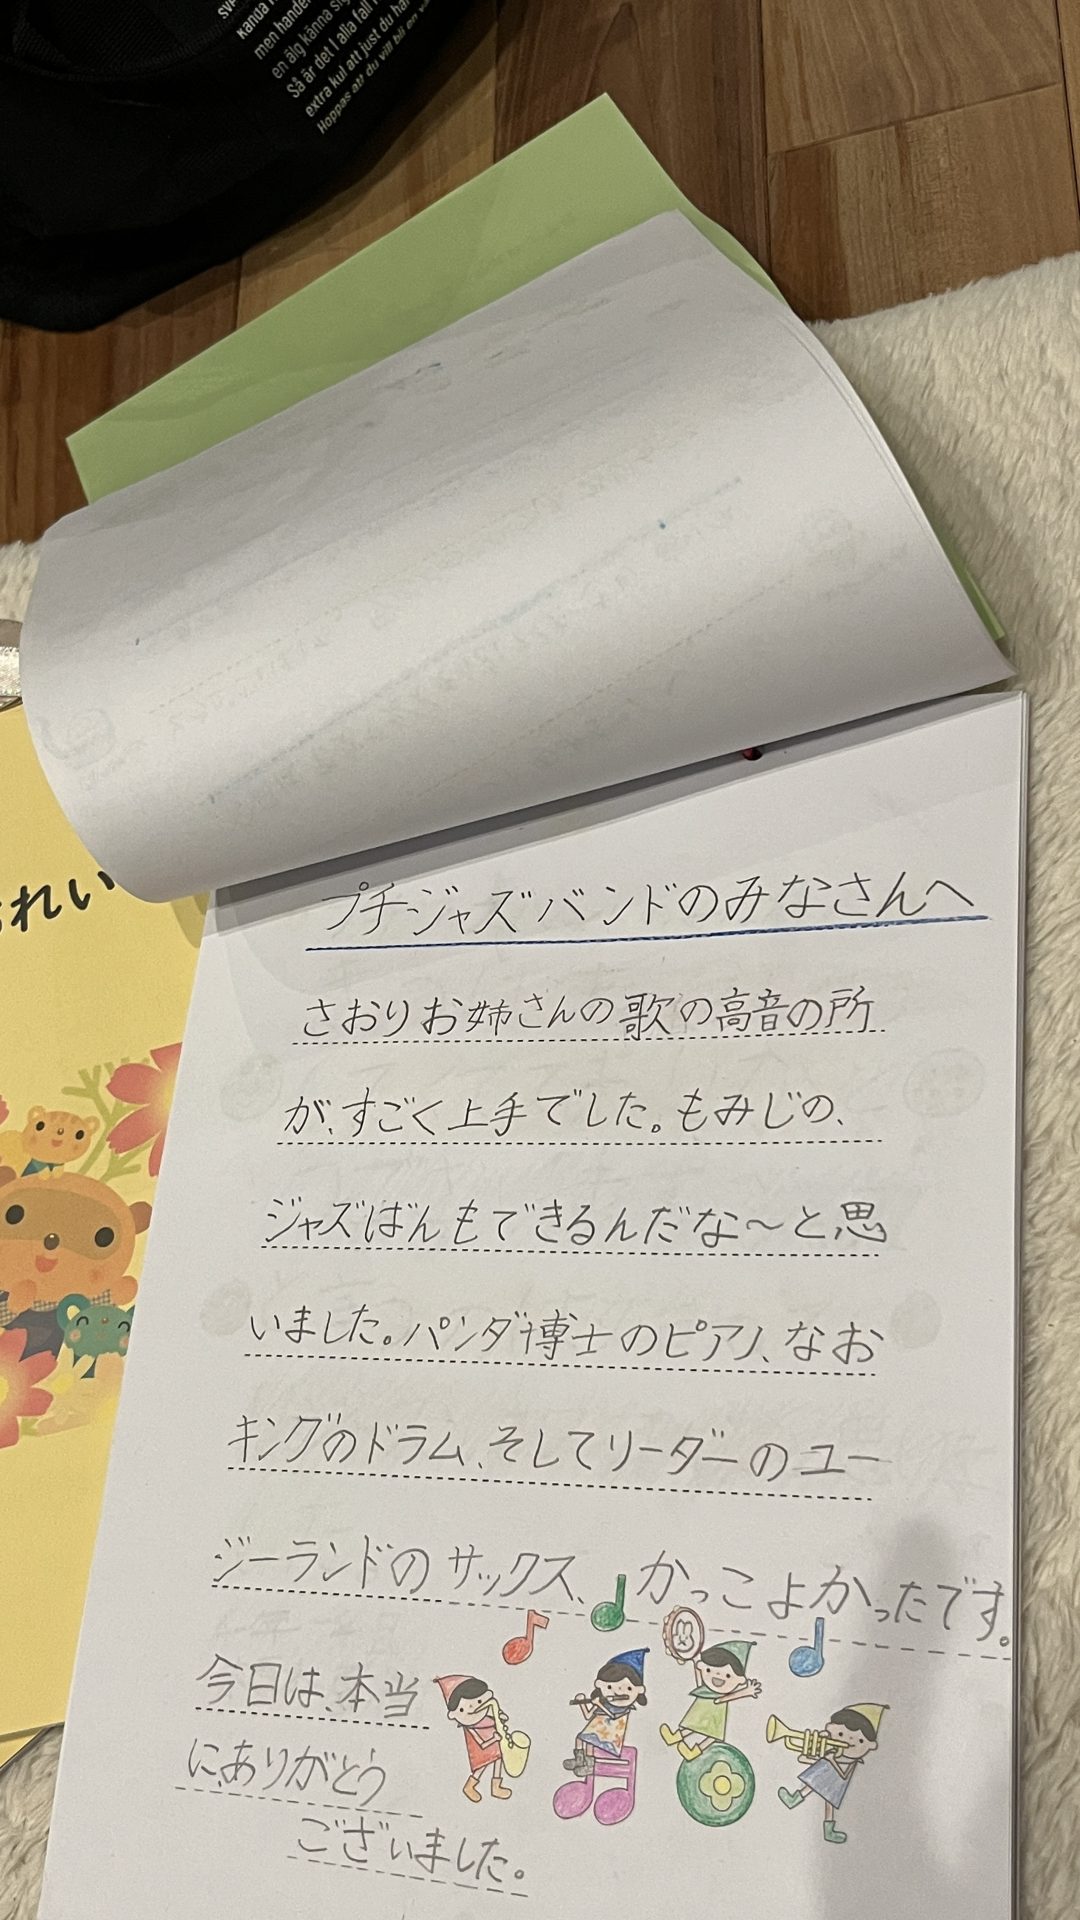 kanda
men hande
en älg känna si
Så är det I alla fall
extra kul att just du ha
Hoppas att du vill bli en
れい
プチジャズバンドのみなさんへ
さおりお姉さんの歌の高音の所
が、すごく上手でした。もみじの、
ジャズばんもできるんだな〜と思
いました。パンダ博士のピアノ、なお
キングのドラム、そしてリーダーのユー
ジーランドのサックス、かっこよかったです。
今日は、本当
に、ありがとう
ございました。